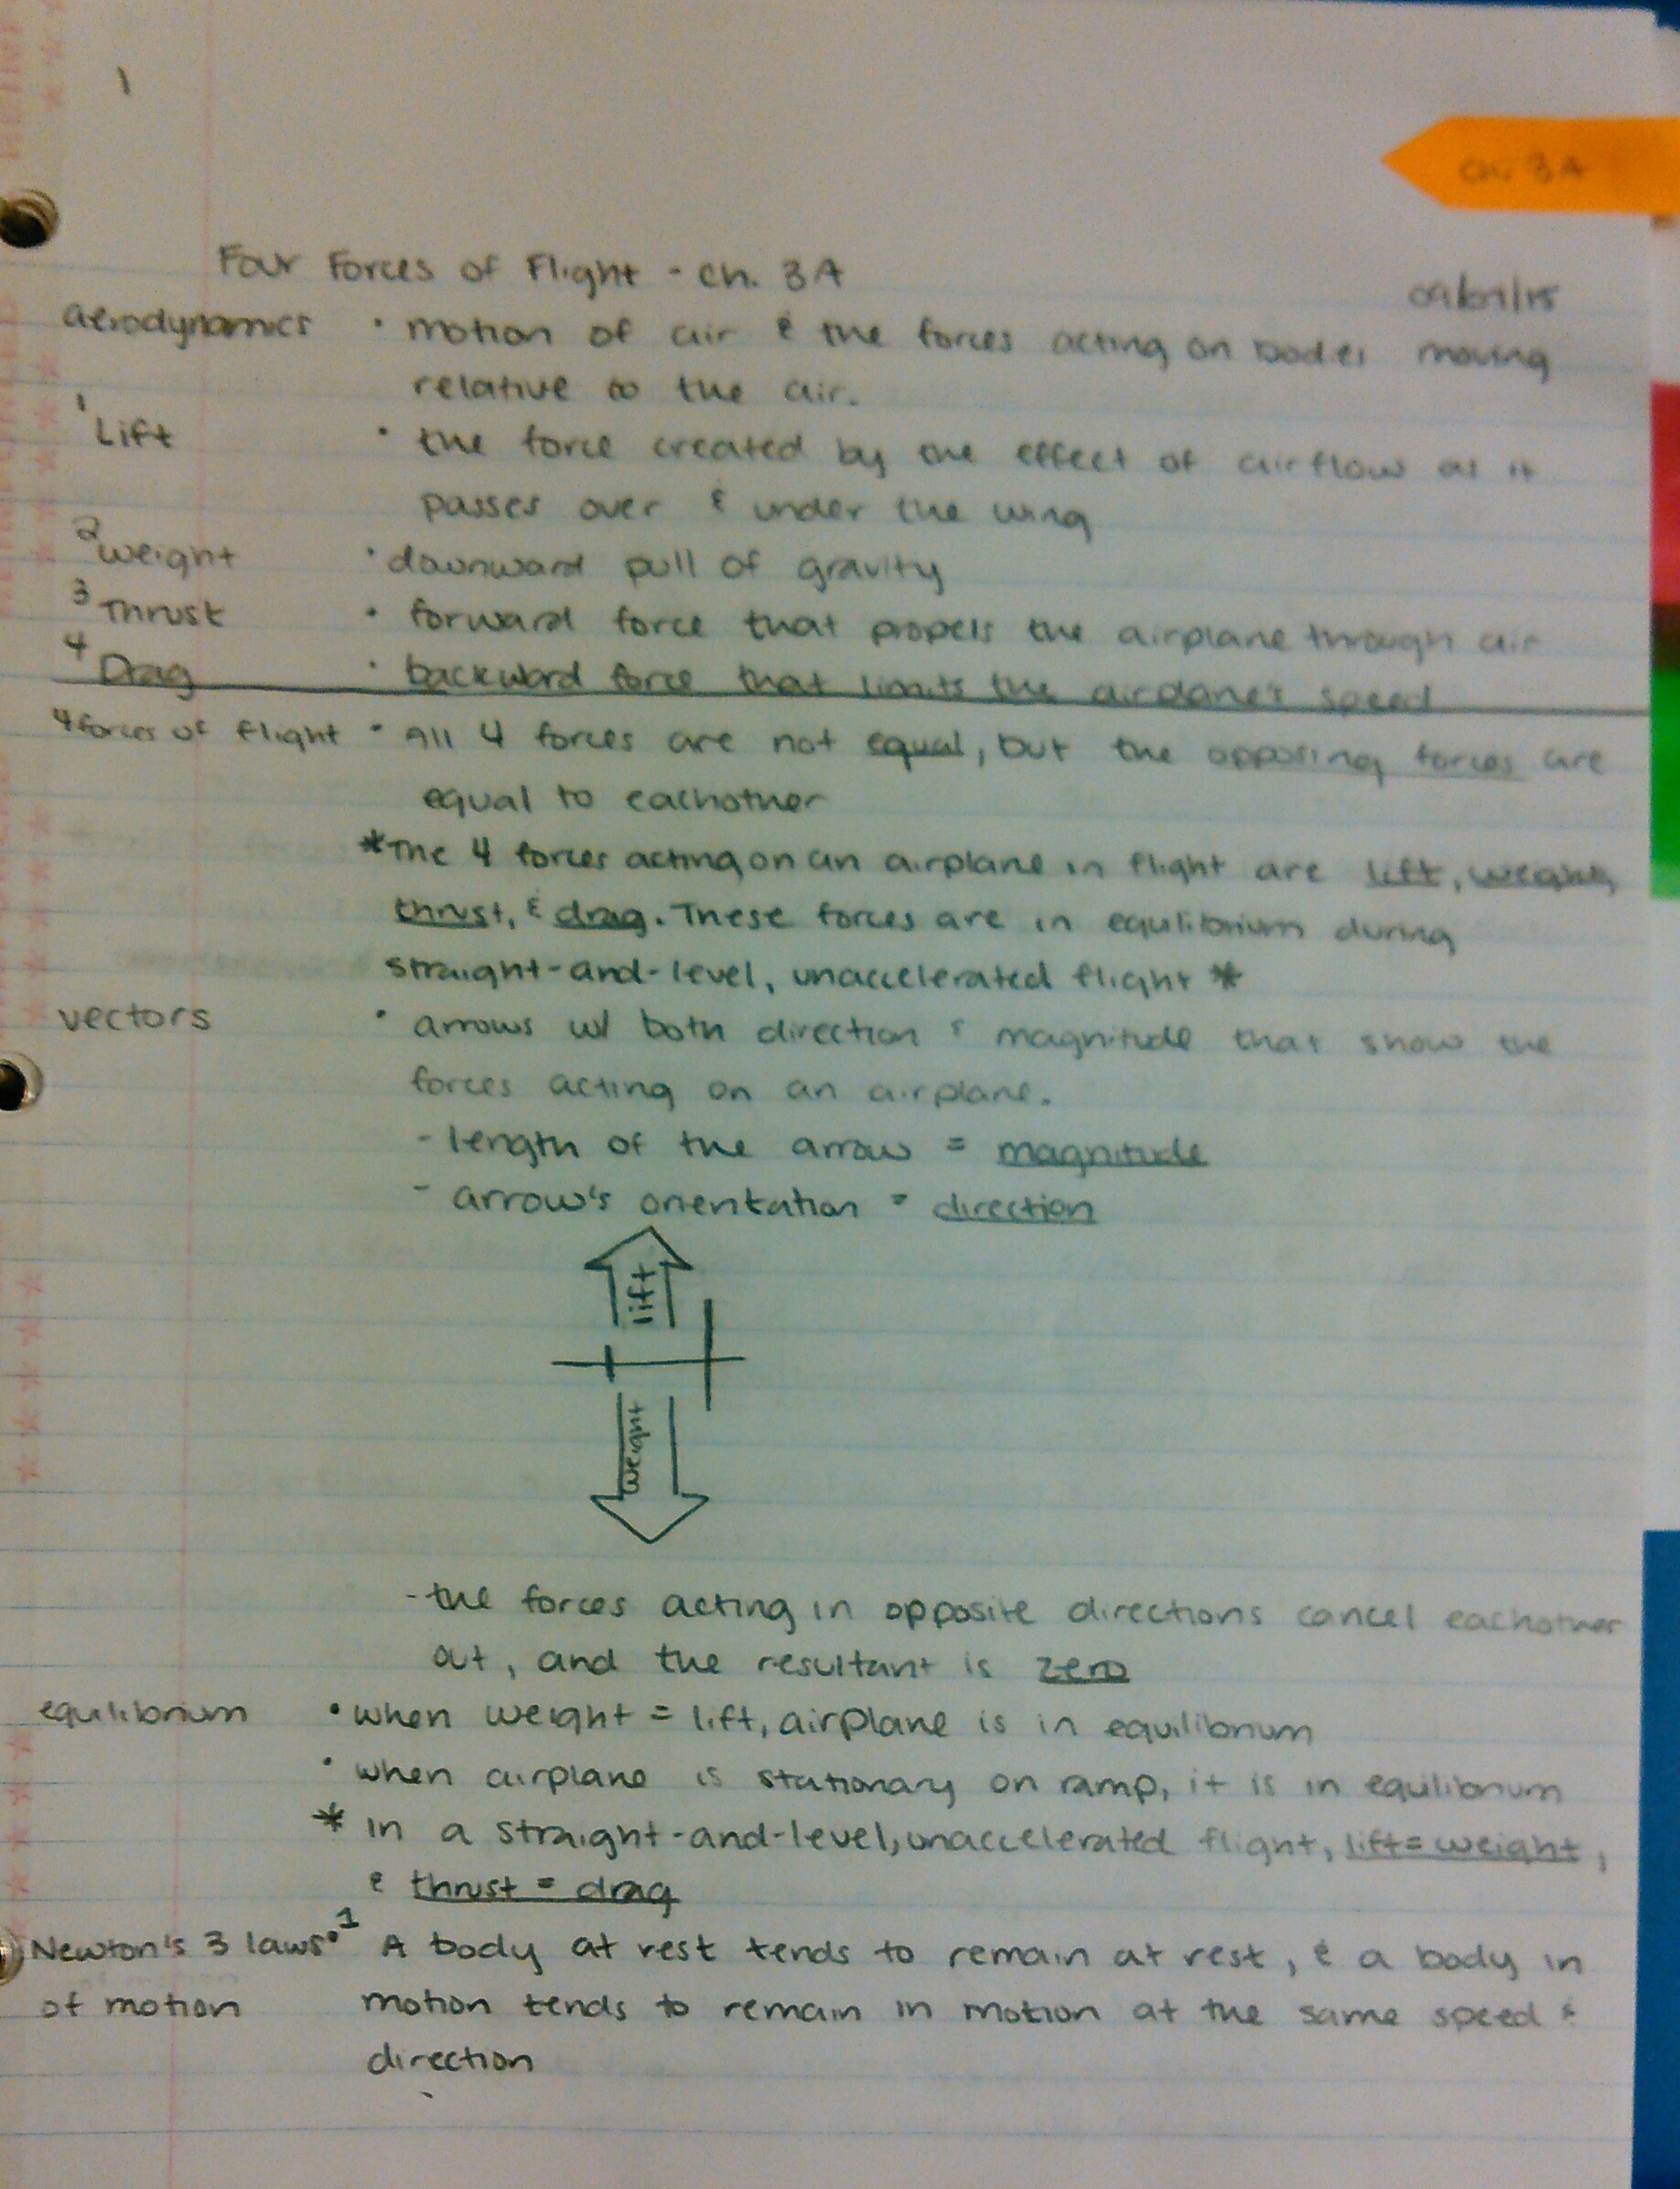 1
Ch. 3A
Four Forces of Flight - Ch. 3A
aerodynamics • motion of air & the forces acting on bodies moving
relative to the air.
1 Lift • the force created by the effect of airflow as it
passes over & under the wing
2 weight • downward pull of gravity
3 Thrust • forward force that propels the airplane through air
4 Drag • backward force that limits the airplane's speed
4 forces of flight • All 4 forces are not equal, but the opposing forces are
equal to eachother
*The 4 forces acting on an airplane in flight are lift, weight,
thrust, & drag. These forces are in equilibrium during
straight-and-level, unaccelerated flight *
vectors • arrows w/ both direction & magnitude that show the
forces acting on an airplane.
- length of the arrow = magnitude
- arrow's orientation = direction
lift
weight
- the forces acting in opposite directions cancel eachother
out, and the resultant is zero
equilibrium • when weight = lift, airplane is in equilibrium
• when airplane is stationary on ramp, it is in equilibrium
* in a straight-and-level, unaccelerated flight, lift = weight,
& thrust = drag
Newton's 3 laws • 1 A body at rest tends to remain at rest, & a body in
of motion motion tends to remain in motion at the same speed &
direction